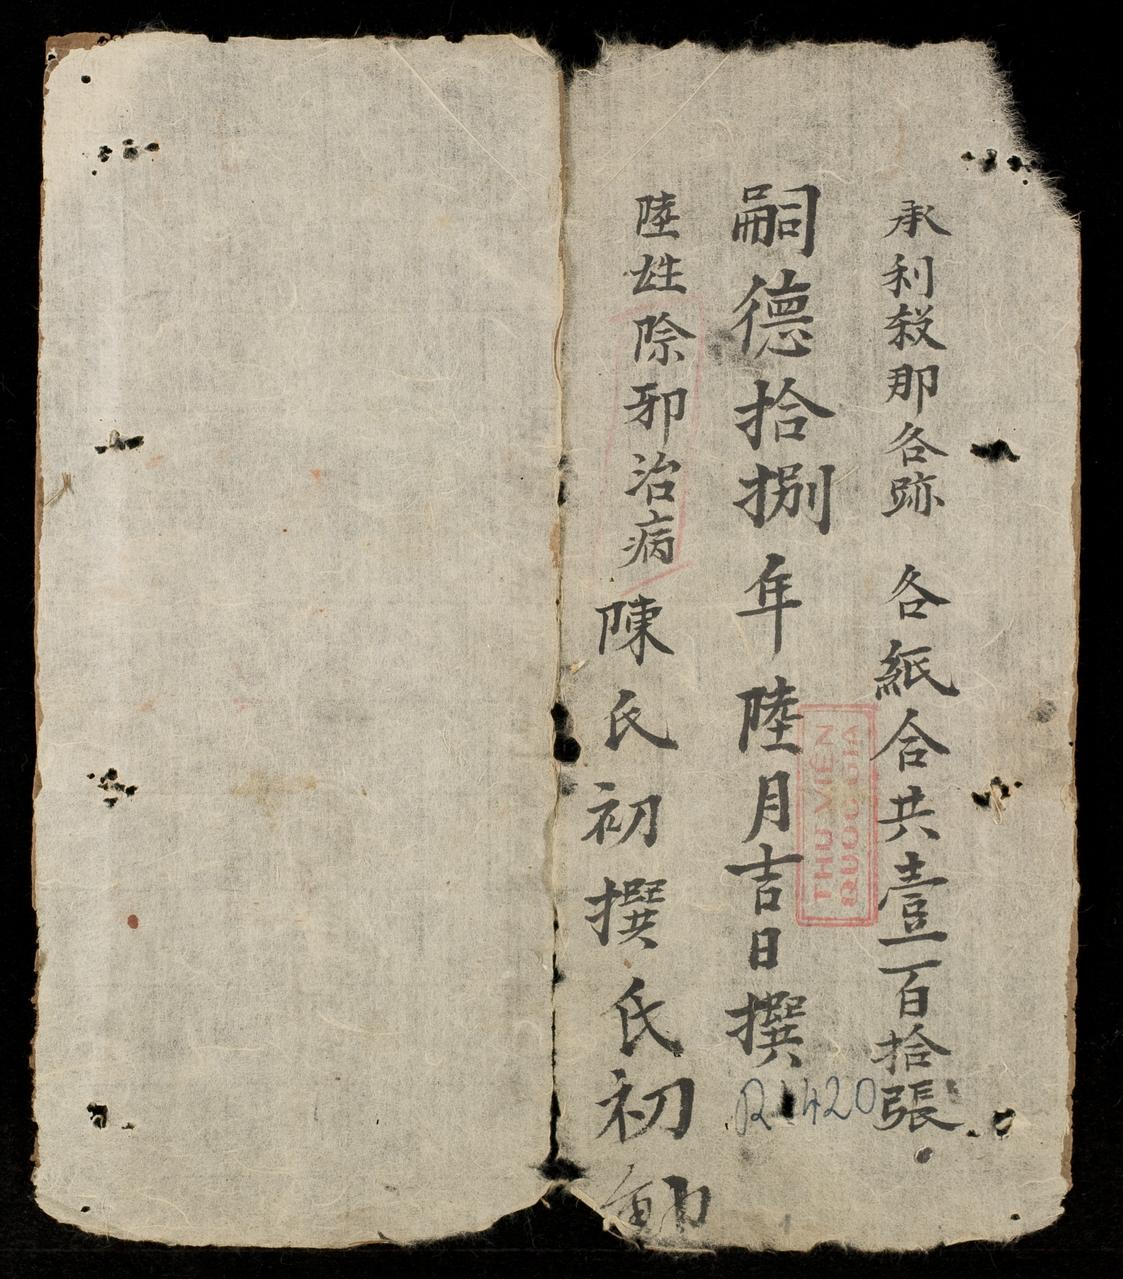 承利殺那各跡 各紙合共壹百拾張
嗣德拾捌年陸月吉日撰
陸姓除邪治病 陳氏初撰氏初
THU VIEN
QUOC GIA
R1420